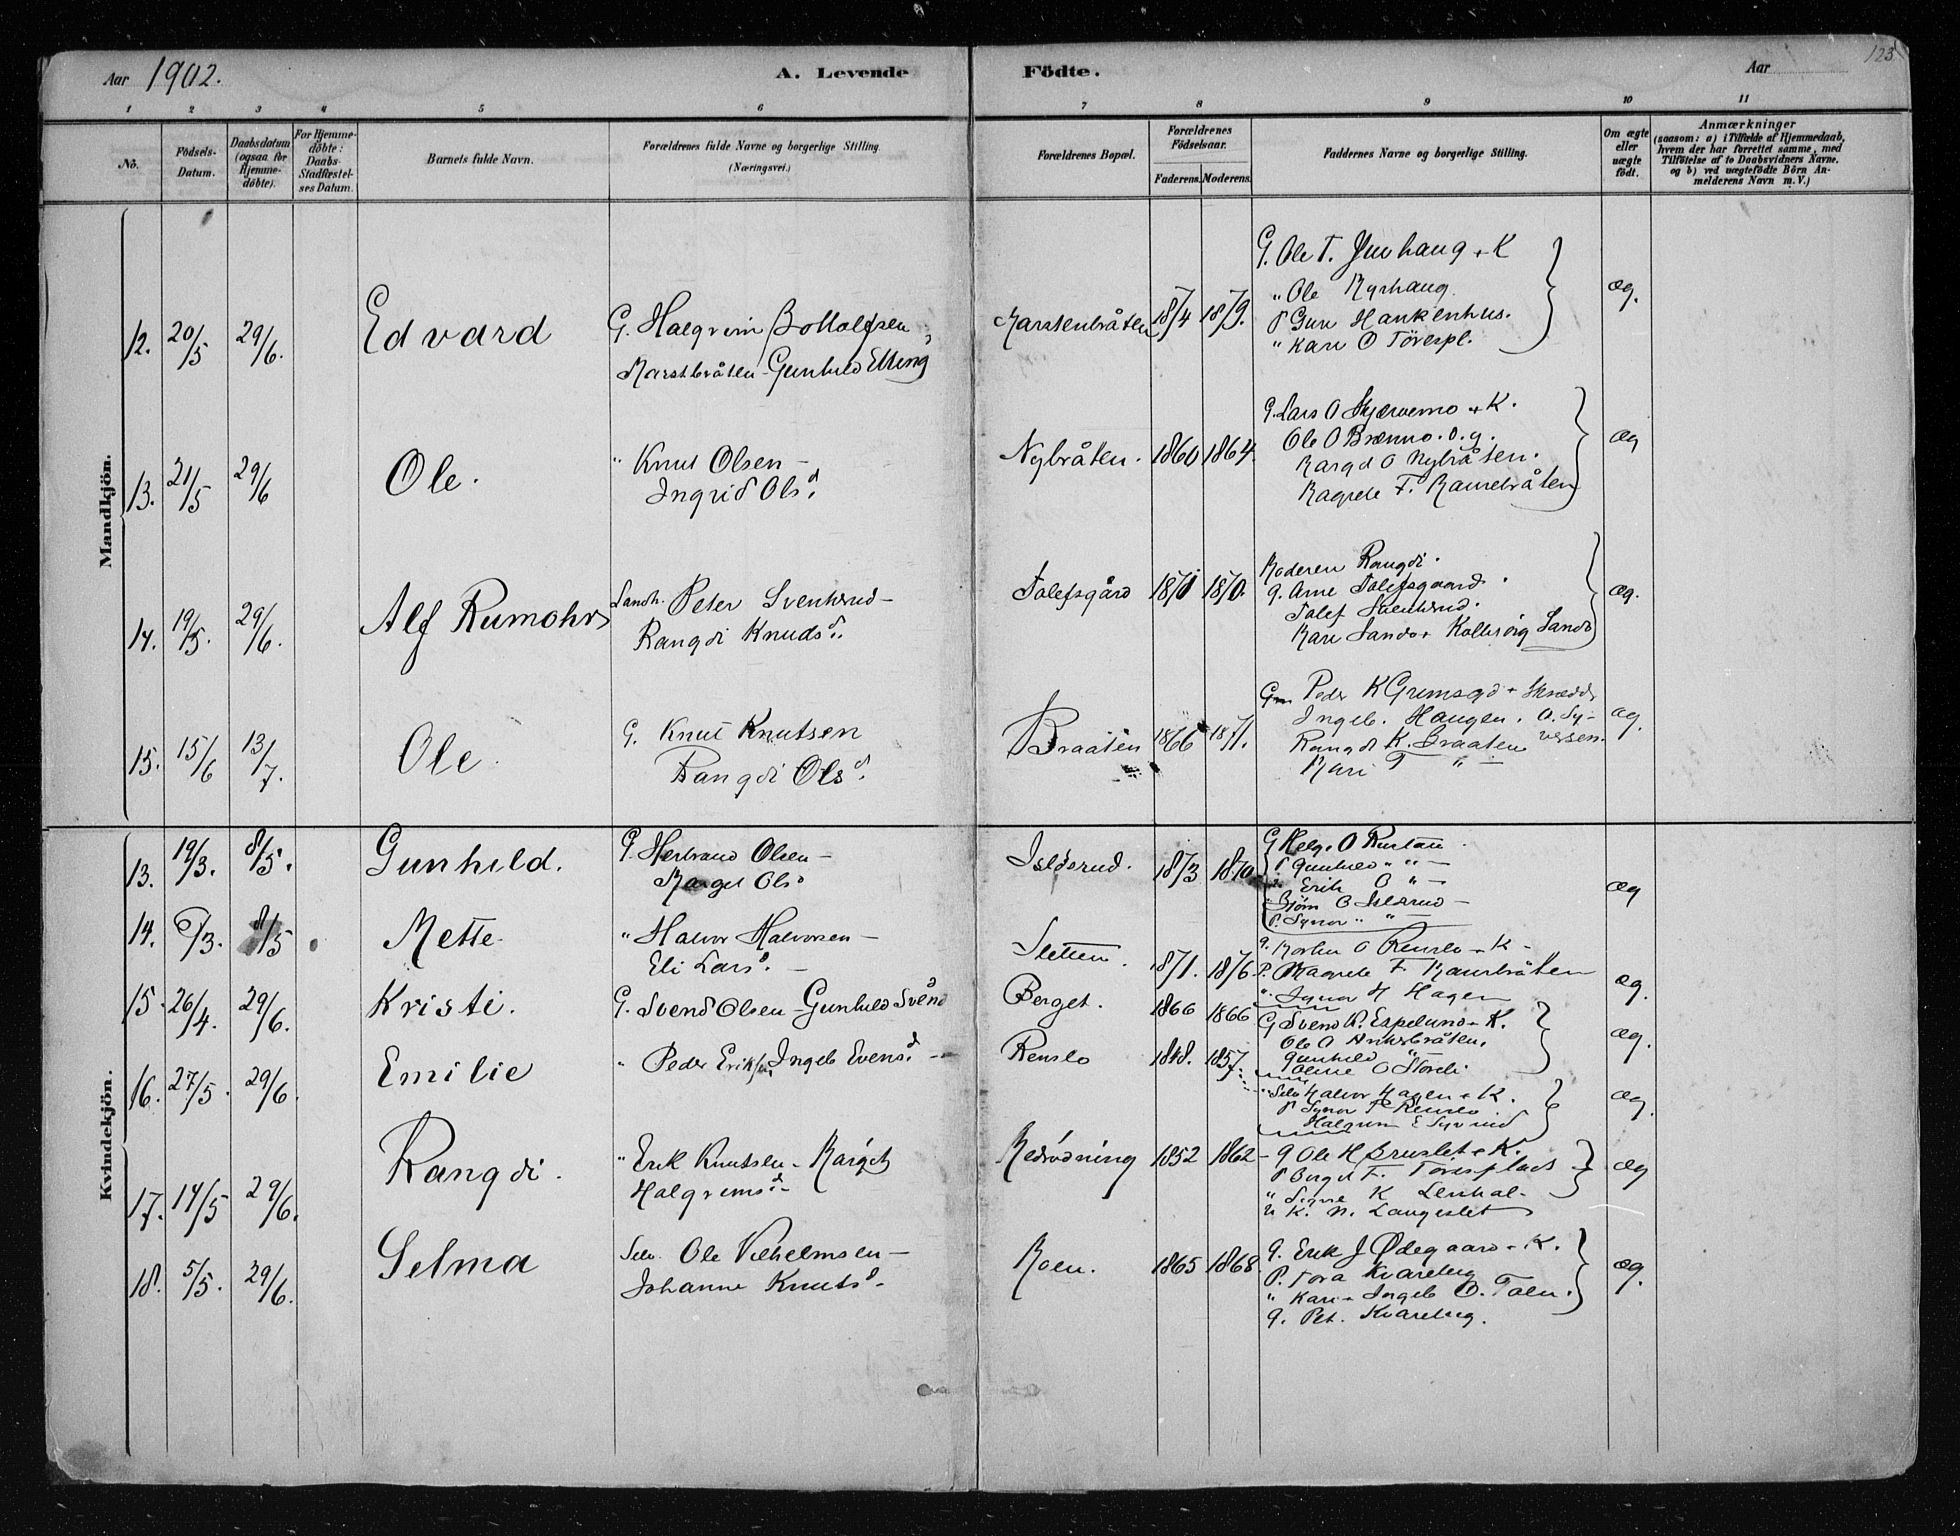 123
Aar 1902.
A. Levende
Födte.
Aar
1 2 3 4 5 6 7 8 9 10 11
No.
Födsels-Datum.
Daabsdatum (ogsaa for Hjemme-döbte).
For Hjemme-döbte: Daabs-Stadfæstel-ses Datum.
Barnets fulde Navn.
Forældrenes fulde Navne og borgerlige Stilling. (Næringsvei.)
Forældrenes Bopæl.
Forældrenes Födselsaar.
Faderens. Moderens.
Faddernes Navne og borgerlige Stilling.
Om ægte eller uægte födt.
Anmærkninger
(saasom: a) i Tilfælde af Hjemmedaab, hvem der har forrettet samme, med Tilföielse af to Daabsvidners Navne, og b) ved uægtefödte Börn An-melderens Navn m. V.)
Mandkjön.
12. 20/5 29/6. Edvard
G. Halgrim Bottolfsen,
Gunhild Elling
1874 1879.
G. Ole T. + K
" Ole
P Guri
" Kari O Tövespl.
æg.
13. 21/5 29/6 Ole.
" Knut Olsen –
Ingrid Olsd.
Nybråten. 1860 1864.
G. Lars O + K.
Ole O Brenno. o. g.
O Nybråten.
æg
14. 19/5. 29/6. Alf Rumohr
Landh. Peter Svenkerud –
Rangdi Knudsd.
Tolefsgård 1870 1870.
Moderen Rangdi.
g. Arne Tolefsgaard.
Tolef Svenkerud.
Kari Sando + Kolbjörg Sando
æg.
15. 15/6 13/7. Ole.
G. Knut Knutsen
Rangdi Olsd.
Braaten 1866 1871.
Peder K Grimsgd +
Ingeb. Haugen.
Rangd K. Braaten
Kari T " –
æg.
Kvindekjön.
13. 19/3. 8/5. Gunhild.
G. Herbrand Olsen –
Marget Olsd
Isldsrud. 1873 1870
G Helge O Rustan
P Gunhild " " –
" Erik O " –
" Björn O Islsrud –
P. Synov " " –
æg
14. 6/3. 8/5 Mette.
" Halvor Halvorsen –
Eli Larsd. –
Sletten. 1871. 1876
g. O Renslo + K –
P. Magrete F.
" Synov H Hagen
æg.
15. 26/4. 29/6. Kristi.
G. Svend Olsen – Gunhild Svend
Berget. 1866 1866
G Svend P. Espelund + K.
Ole O
Gunhild "
O Storeli
æg.
16. 27/5. 29/6. Emilie
" Peder Eriksen Ingeb Evensd. –
Renslo 1848. 1857.
Selv Halvor Hagen + K.
P Synov P Renslo
Halgrim E Syvrud
æg.
17. 14/5 29/6. Rangdi.
" Erik Knutsen – Margit
Halgrimsd –
1852 1862 –
g Ole H Bruslet + K.
P Berget F. Tövesplads
" Signe K
" K. N. Langeslet
æg
18. 5/5. 29/6. Selma
Selv. Ole Vilhelmsen –
Johanne Knutsd –
Moen. 1865 1868
g. Erik J Ødegaard + K.
P. Tora Kvareberg
" Kari + Ingeb O. Toen.
g. Pet. Kvareberg.
æg.